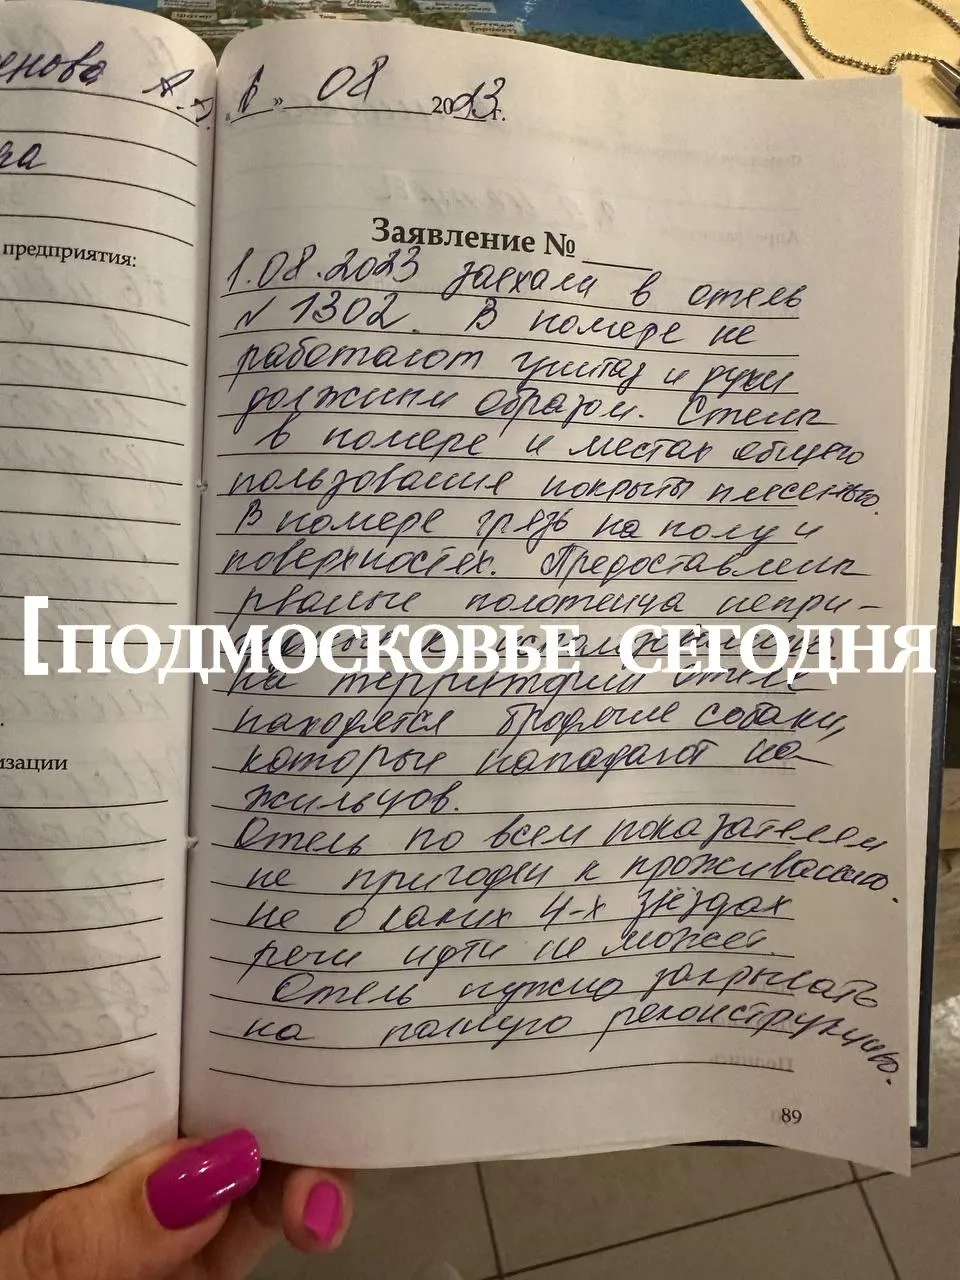 енова А.
«1» 08 2023 г.
ра
предприятия:
Заявление № ___
1.08.2023 заехали в отель
№ 1302. В номере не
работают унитаз и
должным образом. Стены
в номере и местах общего
пользования покрыты плесенью.
В номере грязь на полу и
поверхностях. Предоставлены
рваные полотенца непри-
к использованию.
[ПОДМОСКОВЬЕ СЕГОДНЯ
На территории отеля
находятся бродячие собаки,
которые нападают на
изации
жильцов.
Отель по всем показателям
не пригоден к проживанию.
не о каких 4-х звёздах
речи идти не может.
Отель нужно закрывать
на полную реконструкцию.
89